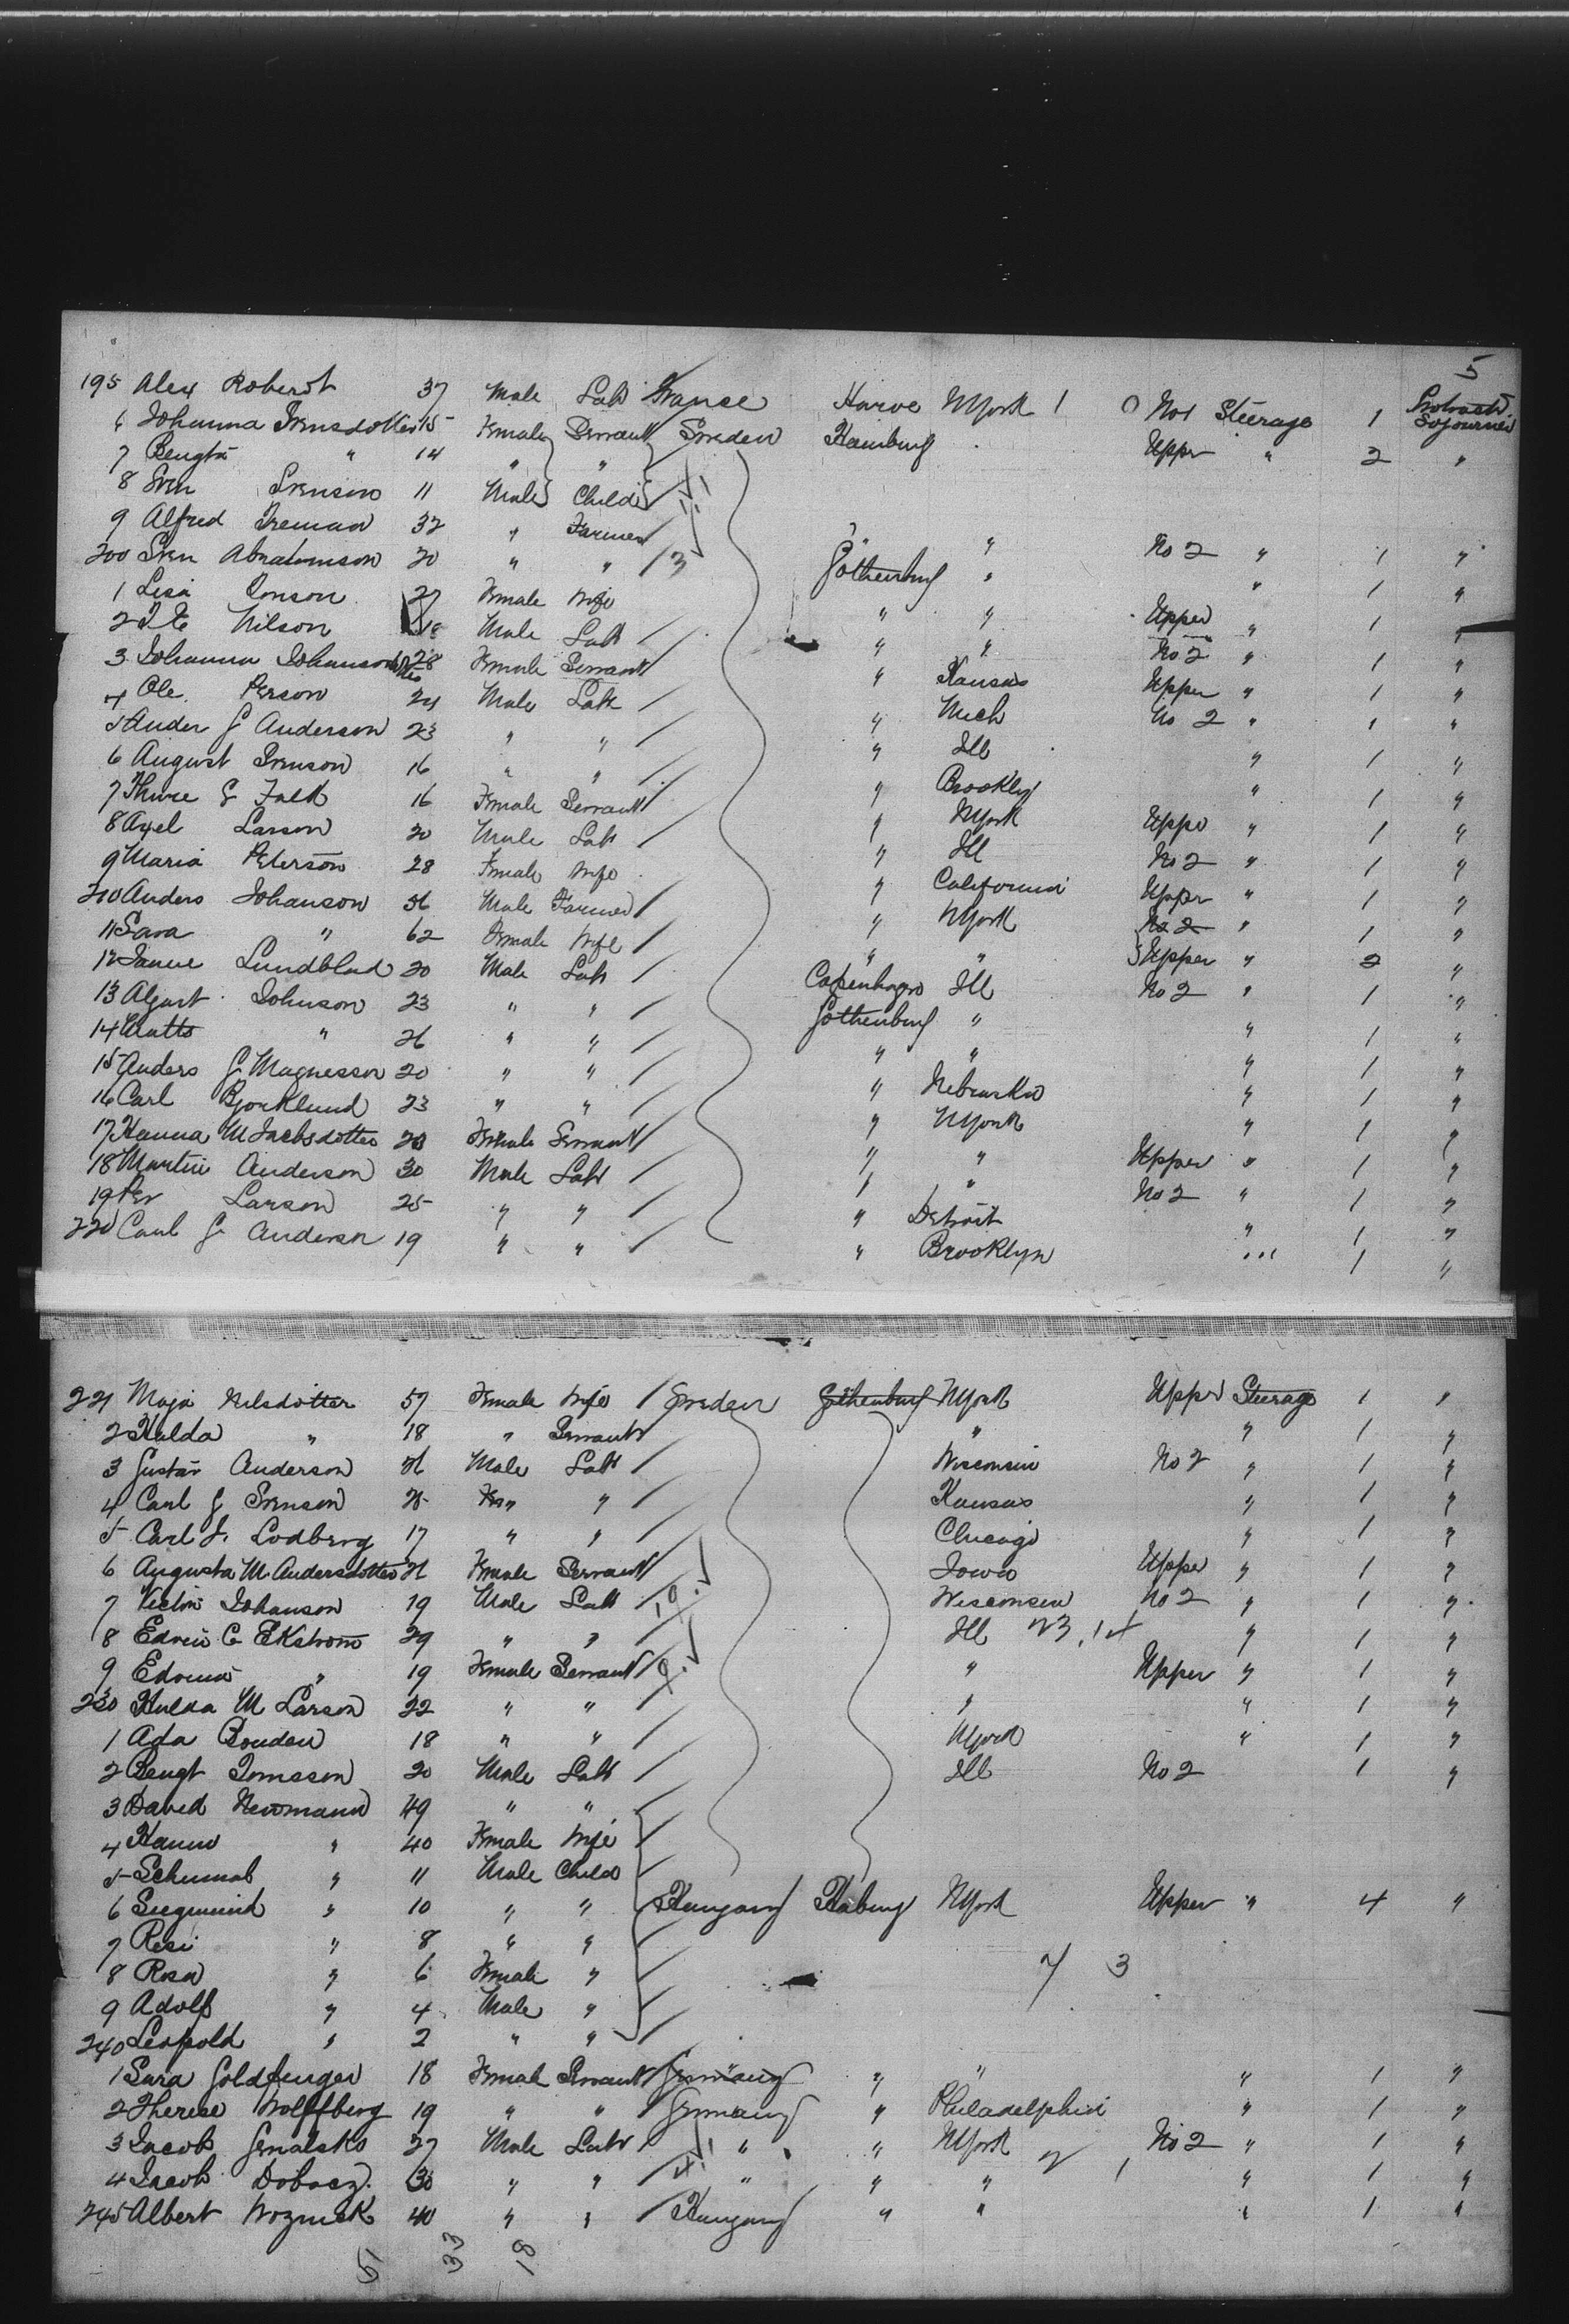 5
195 Alex Roberdt 37 Male Lab France Havre NYork 1 0 No 1 Steerage 1 Protracted Sojourner
6 Johanna Svensdotter 15 Female Servant Sweden Hamburg Upper " 2 "
7 Bengta " 14 " "
8 Sven Svenson 11 Male Child
9 Alfred 32 " Farmer " " No 2 " 1 "
200 Sven Abrahamson 20 " " 3 Gothenburg " " 1 "
1 Lisa 27 Female Wife " " Upper " 1 "
2 Nilson 18 Male Lab " " No 2 " 1 "
3 Johanna 28 Female Servant " Kansas Upper " 1 "
4 Ole Person 24 Male Lab " Mich No 2 " 1 "
5 Ander G Anderson 23 " " " Ill " 1 "
6 August Svenson 16 " " " Brooklyn " 1 "
7 Thure G Falk 16 Female Servant " NYork Uppe " 1 "
8 Axel Larson 20 Male Lab " Ill No 2 " 1 "
9 Maria Peterson 28 Female Wife " California Upper " 1 "
210 Anders Johanson 56 Male Farmer " NYork No 2 " 1 "
11 Sara " 62 Female Wife " " Upper " 2 "
12 Janne Lundblad 20 Male Lab Copenhagen Ill No 2 " 1 "
13 Algart Johnson 23 " " Gothenburg " " 1 "
14 " 26 " " " " " 1 "
15 Anders G Magnesson 20 " " " Nebraska " 1 "
16 Carl Bjorklund 23 " " " NYork " 1 "
17 Hanna M Jacobsdotter 20 Female Servant " " Upper " 1 "
18 Martin Anderson 30 Male Lab " " No 2 " 1 "
19 Per Larson 25 " " " Detroit " 1 "
220 Carl G Anderson 19 " " " Brooklyn " 1 "
221 Maja Nelsdotter 57 Female Wife Sweden Gothenburg NYork Upper Steerage 1 "
2 Hulda " 18 " Servant " " 1 "
3 Gustav Anderson 26 Male Lab Wisconsin No 2 " 1 "
4 Carl G Svenson 25 " " Kansas " 1 "
5 Carl J. Lodberg 17 " " Chicago " 1 "
6 Augusta M Andersdotter 21 Female Servant Iowa Upper " 1 "
7 Victor Johanson 19 Male Lab Wisconsin No 2 " 1 "
8 Edwin C Ekstrom 29 " " Ill 23 " 1 "
9 Edvina " 19 Female Servant " Upper " 1 "
230 Hulda M Larson 22 " " " " 1 "
1 Ada Bonden 18 " " NYork " 1 "
2 Bengt 20 Male Lab Ill No 2 1 "
3 David Newmann 49 " "
4 Hanna " 40 Female Wife
5 " 11 Male Child
6 Siegmund " 10 " " Hungary NYork Upper " 4 "
7 Resi " 8 " "
7 3
8 Rosa " 6 Female "
9 Adolf " 4 Male "
240 Leopold " 2 " "
1 Sara Goldfinger 18 Female Servant Germany " " " 1 "
2 Therese Wolffberg 19 " " Germany " Philadelphia " 1 "
3 Jacob 27 Male Lab " " NYork 2 No 2 " 1 "
4 Jacob 30 " " " " " 1 " 1 "
245 Albert Wozniak 40 " " Hungary " " " 1 "
5 33 18